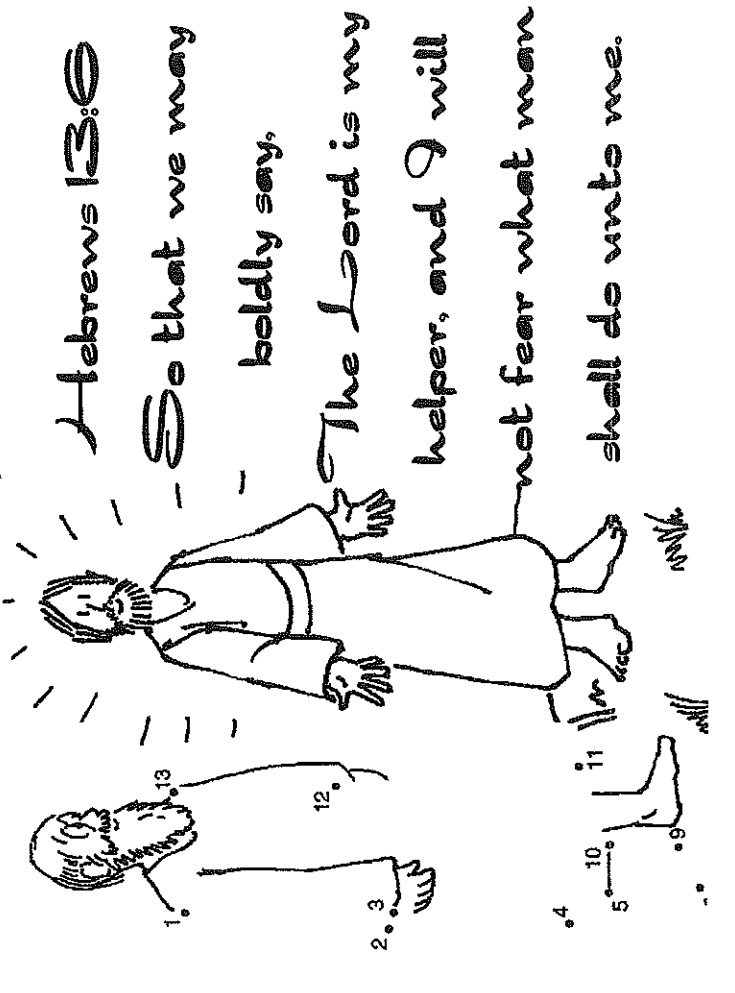 Hebrews 13:6
So that we may
boldly say,
The Lord is my
helper, and I will
not fear what man
shall do unto me.
1
13
2
3
12
4
5
10
9
11